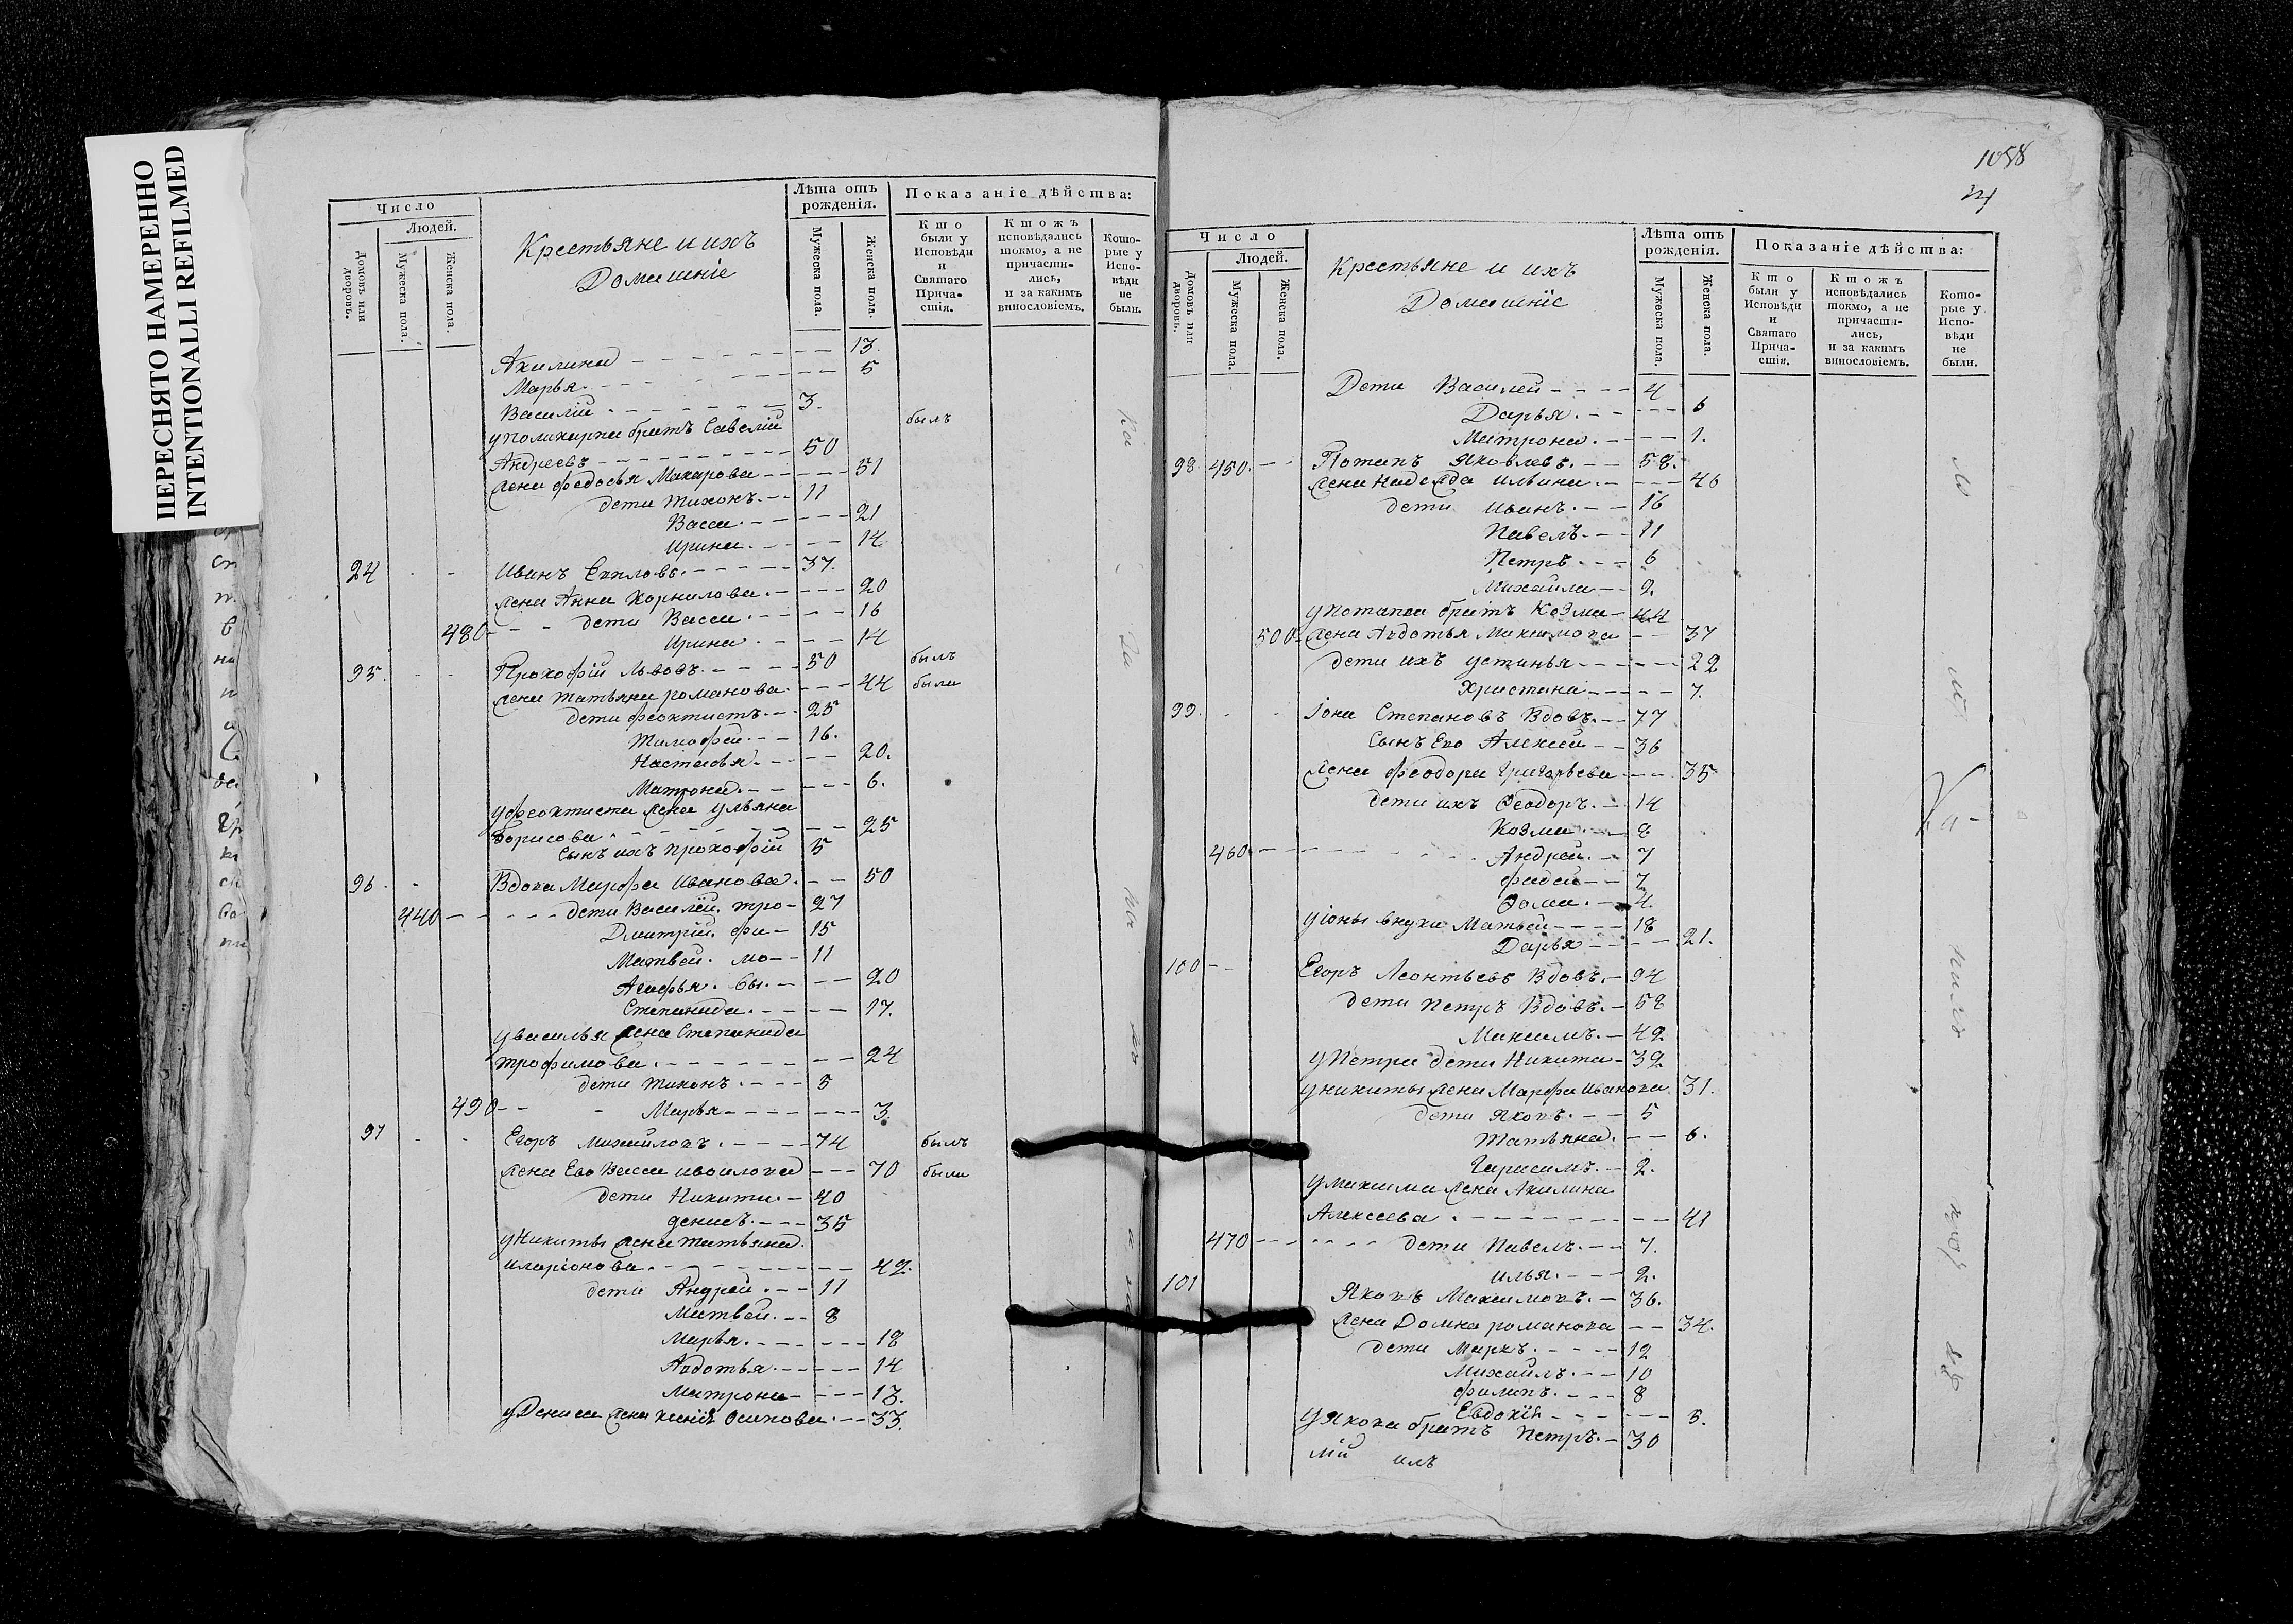 ПЕРЕСНЯТО НАМЕРЕННО
INTENTIONALLI REFILMED
Число
Людей.
Домовъ или дворовъ.
Мужеска пола.
Женска пола.
Крестьяне и ихъ
Домашніе
Лѣта отъ рожденія.
Мужеска пола.
Женска пола.
Показаніе дѣйства:
Кто были у Исповѣди и Святаго Причастія.
Ктожъ исповѣдались токмо, а не причастились, и за какимъ винословіемъ.
Которые у Исповѣди не были.
Акилина 13.
Марья 5
Василій 3.
у поликарпа братъ Савелій былъ
Андреевъ 50
жена федосья Макарова 51
дети Тихонъ 11
Васса 21
Ирина 14
24 Иванъ 37
жена Анна Корнилова 20
дети Васса 16
480 Ирина 14
95. Прокофій Львовъ 50 былъ
жена татьяна романова 44 были
дети феоктистъ 25
Тимофей 16.
Настасья 20.
Матрона 6.
у феоктиста жена ульяна
Борисова 25
Сынъ ихъ прокофій 5
96. Вдова Марфа Иванова 50
440 дети Василій. тро 27
Дмитрій. фи 15
Матвей. мо 11
Агафья. вы. 20
Степанида 17.
у василья жена Степанида
трофимова 24
дети тихонъ 5
490 Марья 3.
97 Егоръ Михайловъ 74 былъ
жена Его Васса 70 были
дети Никита 40
денисъ 35
у Никиты жена татьяна
иларіонова 42.
дети Андрей 11
Матвей 8
Марья 18
Авдотья 14
Матрона 13.
у Дениса жена ксенія Осипова 33.
1058
Число
Людей.
Домовъ или дворовъ.
Мужеска пола.
Женска пола.
Крестьяне и ихъ
Домашніе
Лѣта отъ рожденія.
Мужеска пола.
Женска пола.
Показаніе дѣйства:
Кто были у Исповѣди и Святаго Причастія.
Ктожъ исповѣдались токмо, а не причастились, и за какимъ винословіемъ.
Которые у Исповѣди не были.
Дети Василей 4
Дарья 6
Матрона 1.
98. 450. Потапъ Яковлевъ 58.
жена надежда ильина 46
дети иванъ 16
Павелъ 11
Петръ 6
Михайла 2
у потапа братъ Козма 44
500 жена Авдотья Максимова 37
дети ихъ устинья 22
Христина 7.
99. Іона Степановъ Вдовъ 77
Сынъ Его Алексей 36
жена феодора григорьева 35
дети ихъ Феодоръ 14
Козма 8
460 Андрей 7
фадей 7
Фома 4.
у іоны внуки Матвей 18
Дарья 21.
100 Егоръ Леонтьевъ Вдовъ 94
дети Петръ Вдовъ 58
Максимъ 42
у Петра дети Никита 32
у никиты жена Марфа Иванова 31.
дети Яковъ 5
Татьяна 6.
Гарасимъ 2.
у максима жена Акилина
Алексеева 41
470 дети Павелъ 7.
илья 2.
101 Яковъ Максимовъ 36.
жена Домна романова 34.
дети Маркъ 12
Михайлъ 10
филипъ 8
Евдокія 5.
у Якова братъ Петръ 30
лій илъ